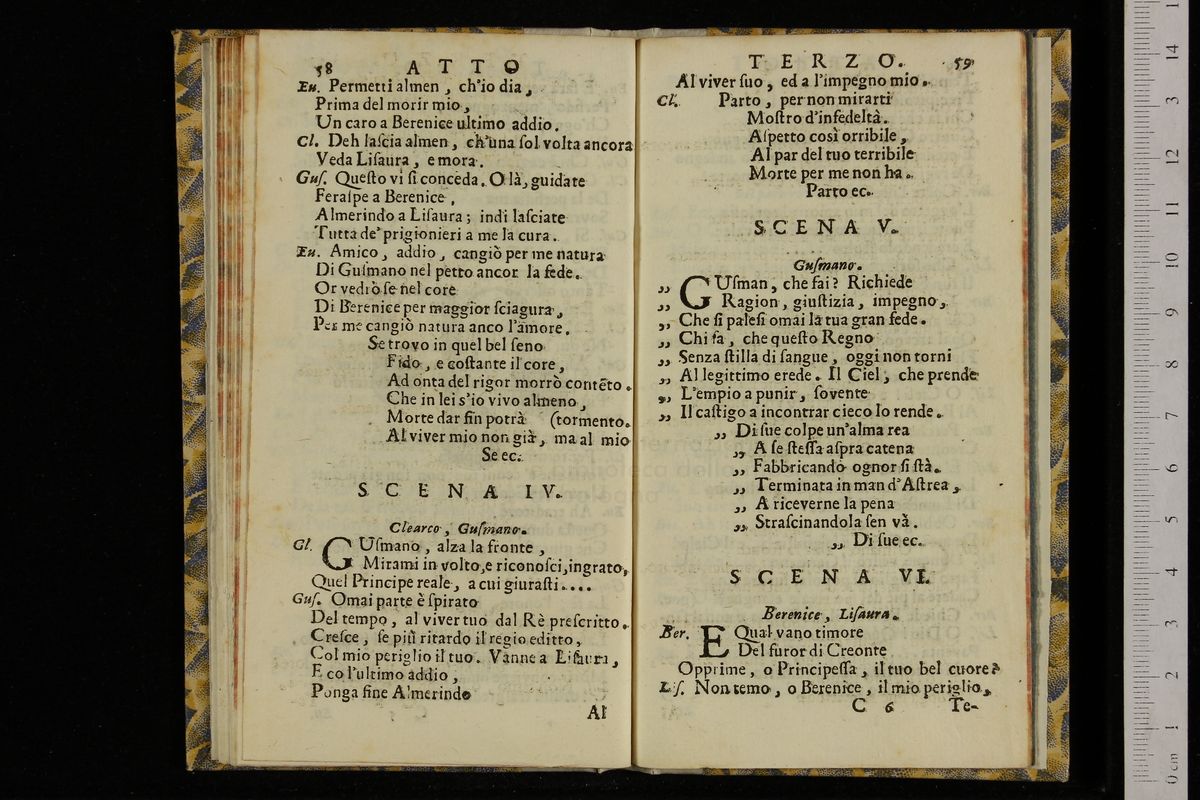 58 ATTO
Eu. Permetti almen, ch'io dia,
Prima del morir mio,
Un caro a Berenice ultimo addio.
Cl. Deh laſcia almen, ch'una ſol volta ancora
Veda Liſaura, e mora.
Guſ. Queſto vi ſi conceda. Olà, guidate
Feraſpe a Berenice,
Almerindo a Liſaura; indi laſciate
Tutta de' prigionieri a me la cura.
Eu. Amico, addio, cangiò per me natura
Di Guſmano nel petto ancor la fede.
Or vedrò ſe nel core
Di Berenice per maggior ſciagura,
Per me cangiò natura anco l'amore.
Se trovo in quel bel ſeno
Fido, e coſtante il core,
Ad onta del rigor morrò contẽto.
Che in lei s'io vivo almeno,
Morte dar fin potrà (tormento.
Al viver mio non già, ma al mio
Se ec.
SCENA IV.
Clearco, Guſmano.
Gl. GUſmano, alza la fronte,
Mirami in volto, e riconoſci, ingrato,
Quel Principe reale, a cui giuraſti....
Guſ. Omai parte è ſpirato
Del tempo, al viver tuo dal Rè preſcritto.
Creſce, ſe più ritardo il regio editto,
Col mio periglio il tuo. Vanne a Liſaura,
E co l'ultimo addio,
Ponga fine Almerindo
Al
TERZO. 59
Al viver ſuo, ed a l'impegno mio.
Cl. Parto, per non mirarti
Moſtro d'infedeltà.
Aſpetto così orribile,
Al par del tuo terribile
Morte per me non ha.
Parto ec.
SCENA V.
Guſmano.
„ GUſman, che fai? Richiede
„ Ragion, giuſtizia, impegno,
„ Che ſi paleſi omai la tua gran fede.
„ Chi fa, che queſto Regno
„ Senza ſtilla di ſangue, oggi non torni
„ Al legittimo erede. Il Ciel, che prende
„ L'empio a punir, ſovente
„ Il caſtigo a incontrar cieco lo rende.
„ Di ſue colpe un'alma rea
„ A ſe ſteſſa aſpra catena
„ Fabbricando ognor ſi ſtà.
„ Terminata in man d'Aſtrea,
„ A riceverne la pena
„ Straſcinandola ſen và.
„ Di ſue ec.
SCENA VI.
Berenice, Liſaura.
Ber. E Qual vano timore
Del furor di Creonte
Opprime, o Principeſſa, il tuo bel cuore?
Liſ. Non temo, o Berenice, il mio periglio,
C 6 Te-